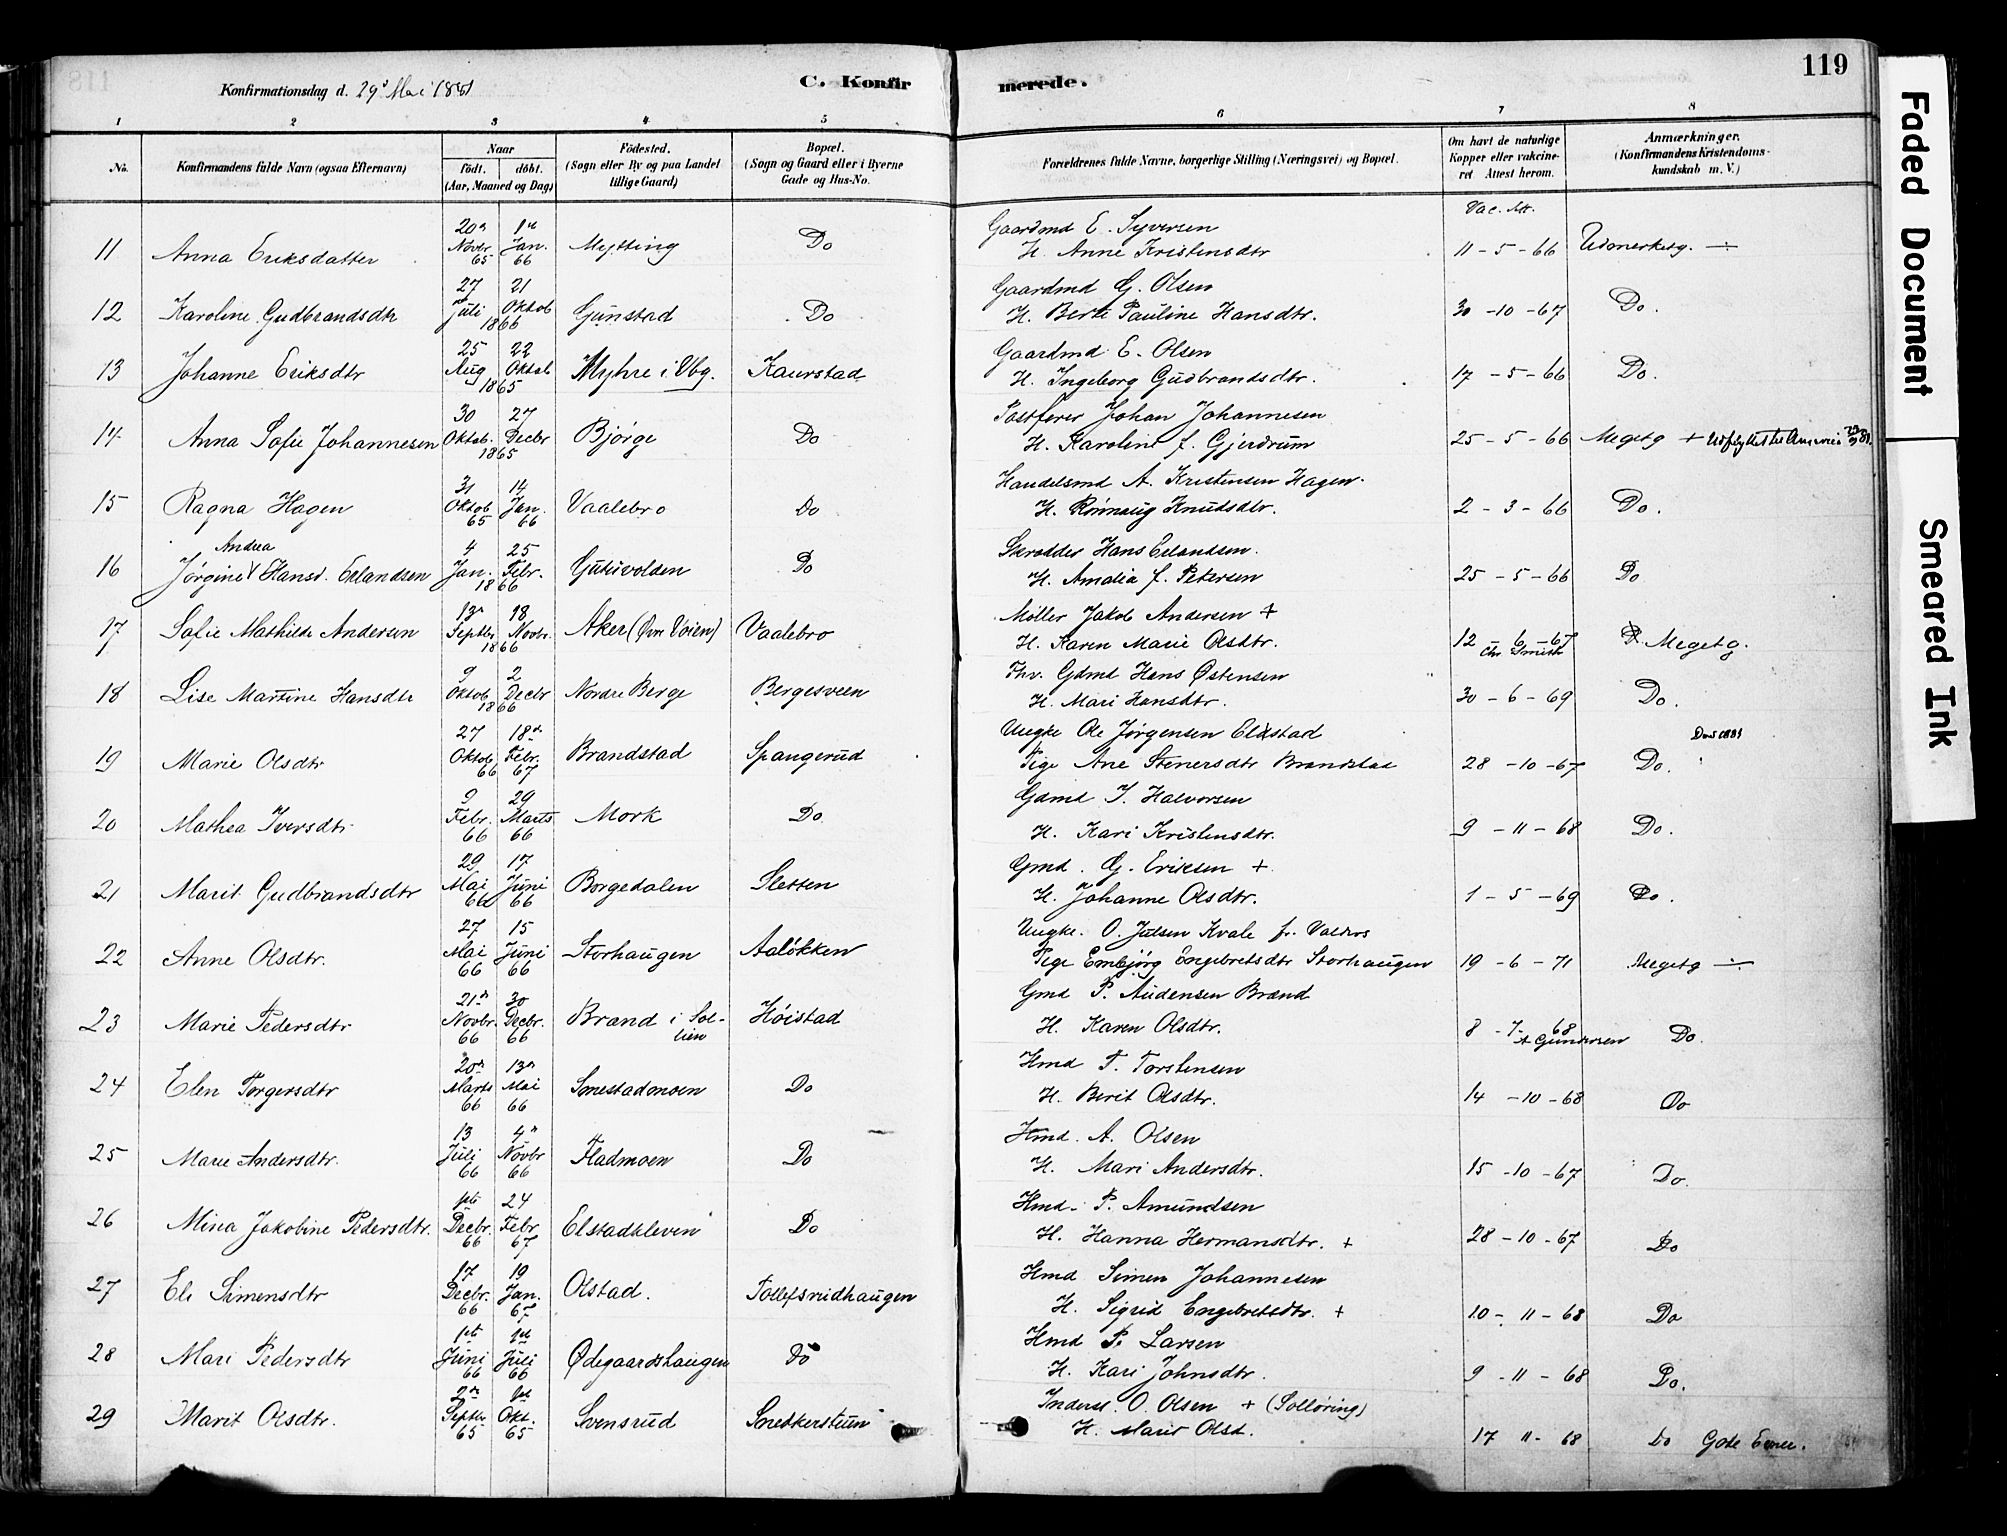 119
Konfirmationsdag d. 29de Mai 1881
C. Konfirmerede.
1 2 3 4 5 6 7 8
No. Konfirmandens fulde Navn (ogsaa Efternavn) Naar født. døbt. (Aar, Maaned og Dag) Fødested. (Sogn eller By og paa Landet tillige Gaard) Bopæl. (Sogn og Gaard eller i Byerne Gade og Hus-No. Forældrenes fulde Navne, borgerlige Stilling (Næringsvei) og Bopæl. Om havt de naturlige Kopper eller vakcineret Attest herom. Anmærkninger. (Konfirmandens Kristendomskundskab m. V.)
Vac. Att.
11 Anna Eriksdatter 20de Novbr. 65 1ste Jan. 66 Mytting Do Gaardmd E. Syversen
H. Anne Kristensdtr 11-5-66 Udmerketg. ÷
12 Karoline Gudbrandsdtr 27 Juli 21 Oktob 1866 Gunstad Do Gaardmd G. Olsen
H. Berte Pauline Hansdtr. 30-10-67 Do.
13 Johanne Eriksdtr 25 Aug 22 Oktob 1865 Myhre i Vbg. Kaurstad Gaardmd E. Olsen
H. Ingeborg Gudbrandsdtr. 17-5-66 Do.
14 Anna Sofie Johannesen 30 Oktob. 27 Decbr 1865 Bjørge Do Postfører Johan Johannesen
H. Karoline f. Gjerdrum 25-5-66 Megetg + Udflyttet til Amerika
15 Ragna Hagen 31 Oktob 65 14 Jan. 66 Vaalebro Do Handelsmd A. Kristensen Hagen.
H. Rønnaug Knudsdtr. 2-3-66 Do.
16 Jørgine Andrea Hansd. Erlandsen 4 Jan. 25 Febr. 1866 Gutuvolden Do Skrædder Hans Erlandsen.
H. Amalia f. Petersen 25-5-66 Do
17 Sofie Mathilde Andersen 13de Septbr 18 Novbr. 1866 Aker (Øvre Voien) Vaalebro Møller Jakob Andersen +
H. Karen Marie Olsdtr. 12-6-67 Chr Smith Megetg.
18 Lise Martine Hansdtr 9 Oktob 2 Decbr 1866 Nordre Berge Bergesveen Fhv. Gdmd Hans Østensen
H. Mari Hansdtr. 30-6-69 Do.
19 Marie Olsdtr 27 Oktob 66 18de Febr. 67 Brandstad Spangerud Ungke Ole Jørgensen Elstad
Pige Ane Stenersdtr Brandstad 28-10-67 Do.
20 Mathea Iversdtr 9 Febr. 66 29 Marts 66 Mork Do Gdmd I. Halvorsen
H. Kari Kristensdtr. 9-11-68 Do.
21 Marit Gudbrandsdtr 29 Mai 66 17 Juni 66 Borgedalen Sletten Gmd. G. Eriksen +
H. Johanne Olsdtr. 1-5-69 Do.
22 Anne Olsdtr. 27 Mai 66 15 Juni 66 Storhaugen Aaløkken Ungke. O. Julsen Kvale fr. Valders
Pige Embjørg Engebretsdtr Storhaugen 19-6-71 Megetg ÷
23 Marie Pedersdtr 21de Novbr. 66 30 Decbr. 66 Brand i Sollien Høistad Gmd P. Audensen Brænd
H. Karen Olsdtr. 8-7-68 A Gundersen Do.
24 Elen Torgersdtr 20de Marts 66 13de Mai 66 Smestadmoen Do Hmd T. Torstensen
H. Berit Olsdtr. 14-10-68 Do
25 Marie Andersdtr. 13 Juli 66 4de Novbr 66 Fladmoen Do Hmd. A. Olsen
H. Mari Andersdtr. 15-10-67 Do.
26 Mina Jakobine Pedersdtr. 1ste Decbr. 66 24 Febr 67 Elstadkleven Do Hmd. P. Amundsen
H. Hanna Hermansdtr. + 28-10-67 Do
27 Eli Simensdtr 17 Decbr. 66 19 Jan. 67 Olstad. Tollefsrudhaugen Hmd Simen Johannesen
H. Sigrid Engebretsdtr. + 10-11-68 Do
28 Mari Pedersdtr 1ste Juni 66 1ste Juli 66 Ødegaardshaugen Do Hmd P. Larsen
H. Kari Johnsdtr. 9-11-68 Do.
29 Marit Olsdtr. 2de Septbr 65 1ste Okt. 65 Svensrud Snekkerstuen Inderst. O. Olsen + (Solløring)
H. Marit Olsd. 17 11-68 Do Gode Evner.
Faded Document
Smeared Ink